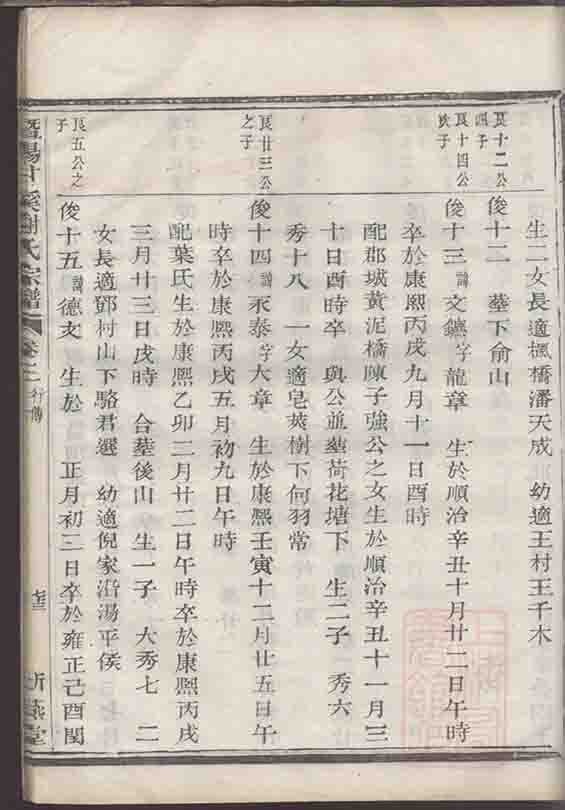 生二女長適楓橋潘天成 幼適王村王千木
良十二公
四子
俊十二 墓下俞山
良十四公
次子
俊十三諱文鑣字龍章 生於順治辛丑十月廿二日午時
卒於康熙丙戌九月十一日酉時
配郡城黃泥橋陳子強公之女生於順治辛丑十一月三
十日酉時卒 與公並墓荷花塘下 生二子 秀六
秀十八 一女適皂莢樹下何羽常
良廿三公
之子
俊十四諱永泰字大章 生於康熙壬寅十二月廿五日午
時卒於康熙丙戌五月初九日午時
配葉氏生於康熙乙卯三月廿二日午時卒於康熙丙戌
三月廿三日戌時 合墓後山 生一子 大秀七 二
女長適鄧村山下駱君選 幼適倪家沿湯平侯
良五公之
子
俊十五諱德文 生於 正月初三日卒於雍正己酉閏
暨陽甘溪謝氏宗譜 卷二 行傳